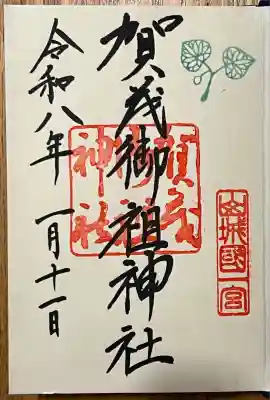 山城國一宮
賀茂御祖神社
賀茂御祖神社
令和八年 一月十一日